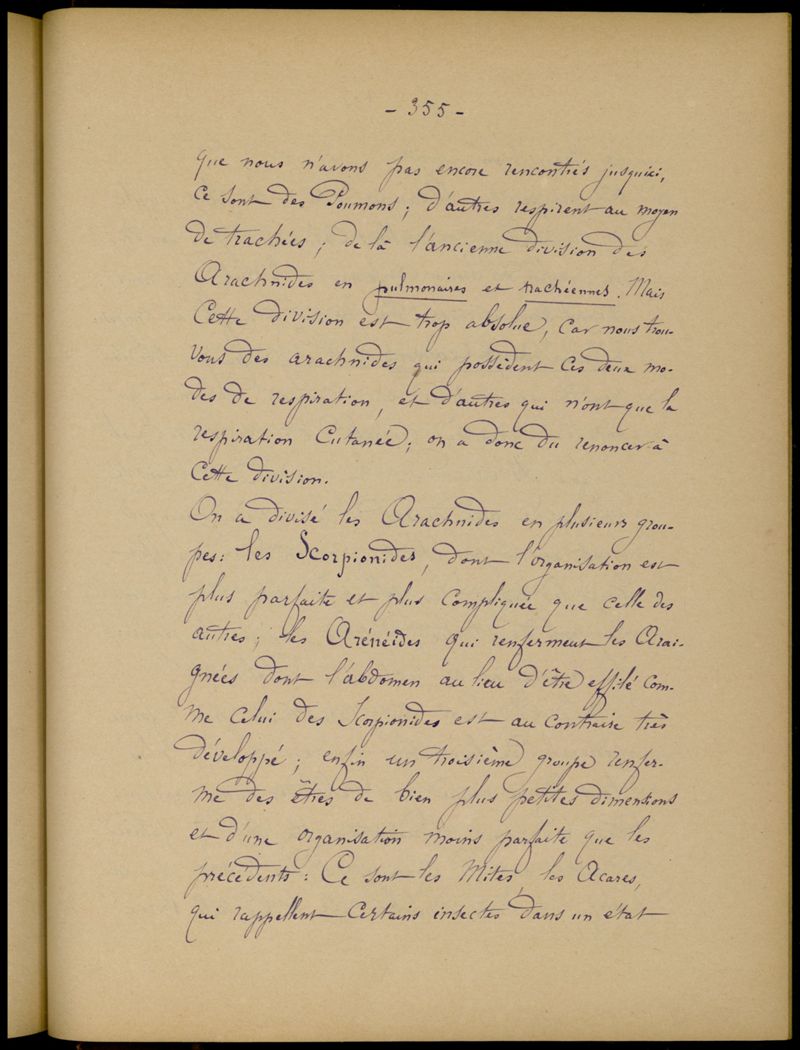 - 355 -
que nous n'avons pas encore rencontrés jusqu'ici,
Ce sont des Poumons; d'autres respirent au moyen
de trachées; de là l'ancienne division des
Arachnides en pulmonaires et trachéennes. Mais
Cette division est trop absolue, car nous trou-
vons des arachnides qui possèdent ces deux mo-
des de respiration, et d'autres qui n'ont que la
respiration Cutanée; on a donc du renoncer à
Cette division.
On a divisé les Arachnides en plusieurs grou-
pes: les Scorpionides, dont l'organisation est
plus parfaite et plus compliquée que celle des
autres; les Arénéides qui renferment les Arai-
gnées dont l'abdomen au lieu d'être effilé com-
me celui des Scorpionides est au contraire très
développé; enfin un troisième groupe renfer-
me des êtres de bien plus petites dimensions
et d'une organisation moins parfaite que les
précédents: Ce sont les Mites, les Acares,
qui rappellent Certains insectes dans un état